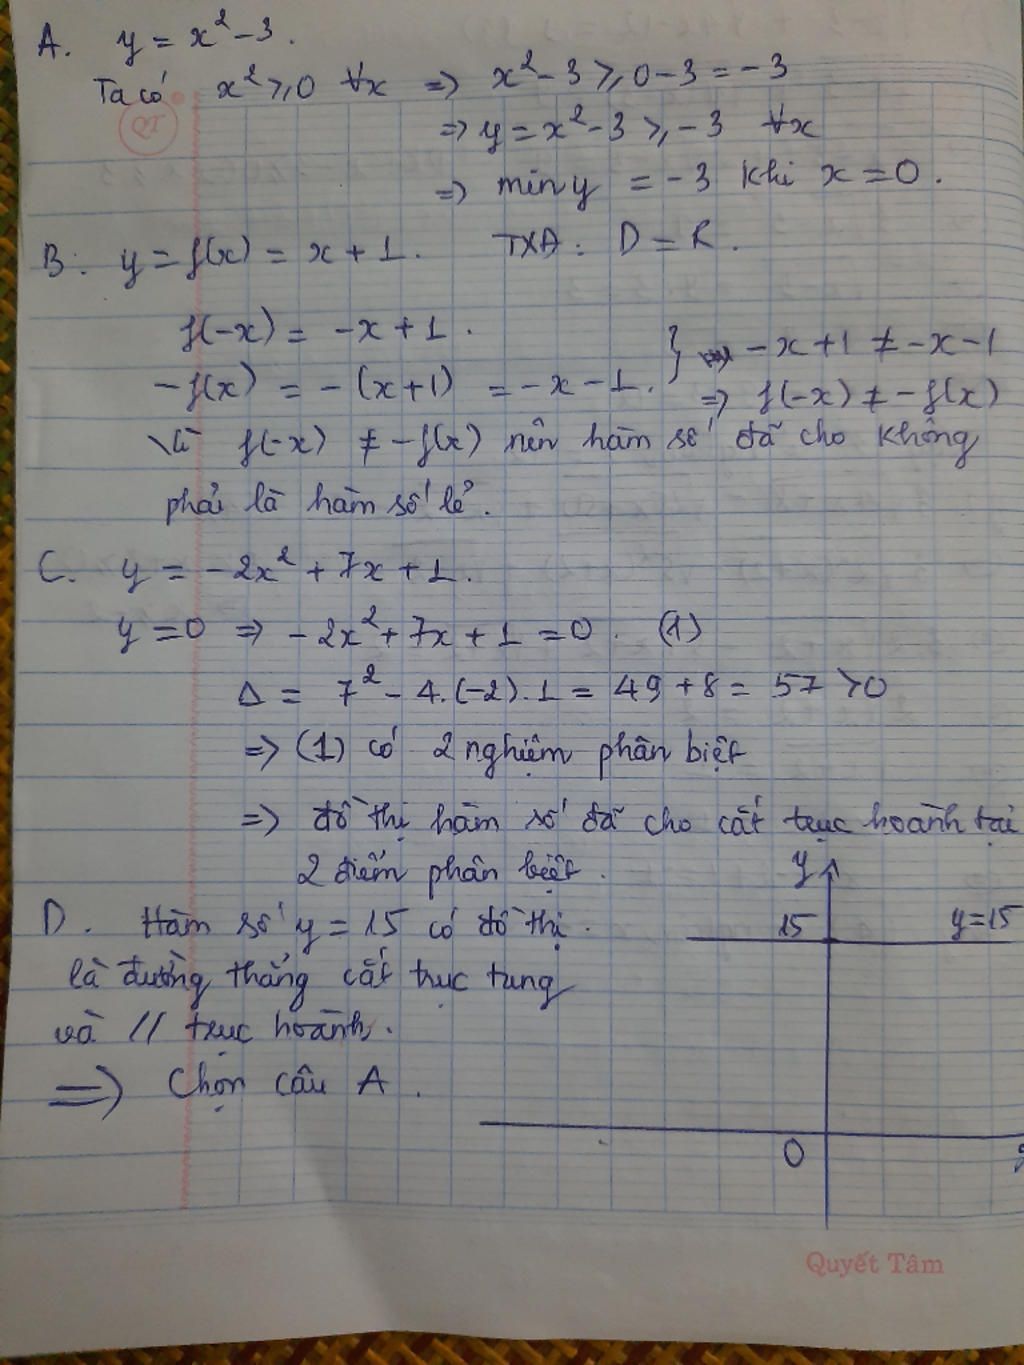 A. y = x² - 3.
Ta có x² ≥ 0 ∀x => x² - 3 ≥ 0 - 3 = -3
=> y = x² - 3 ≥ -3 ∀x
=> min y = -3 khi x = 0.
B. y = f(x) = x + 1. TXĐ: D = R.
f(-x) = -x + 1.
-f(x) = -(x+1) = -x - 1. } -x + 1 ≠ -x - 1
=> f(-x) ≠ -f(x)
Vì f(-x) ≠ -f(x) nên hàm số đã cho không
phải là hàm số lẻ.
C. y = -2x² + 7x + 1.
y = 0 => -2x² + 7x + 1 = 0. (1)
Δ = 7² - 4.(-2).1 = 49 + 8 = 57 > 0
=> (1) có 2 nghiệm phân biệt
=> đồ thị hàm số đã cho cắt trục hoành tại
2 điểm phân biệt.
y
D. Hàm số y = 15 có đồ thị.
15 y = 15
là đường thẳng cắt trục tung
và // trục hoành.
=> Chọn câu A.
O
QT
Quyết Tâm